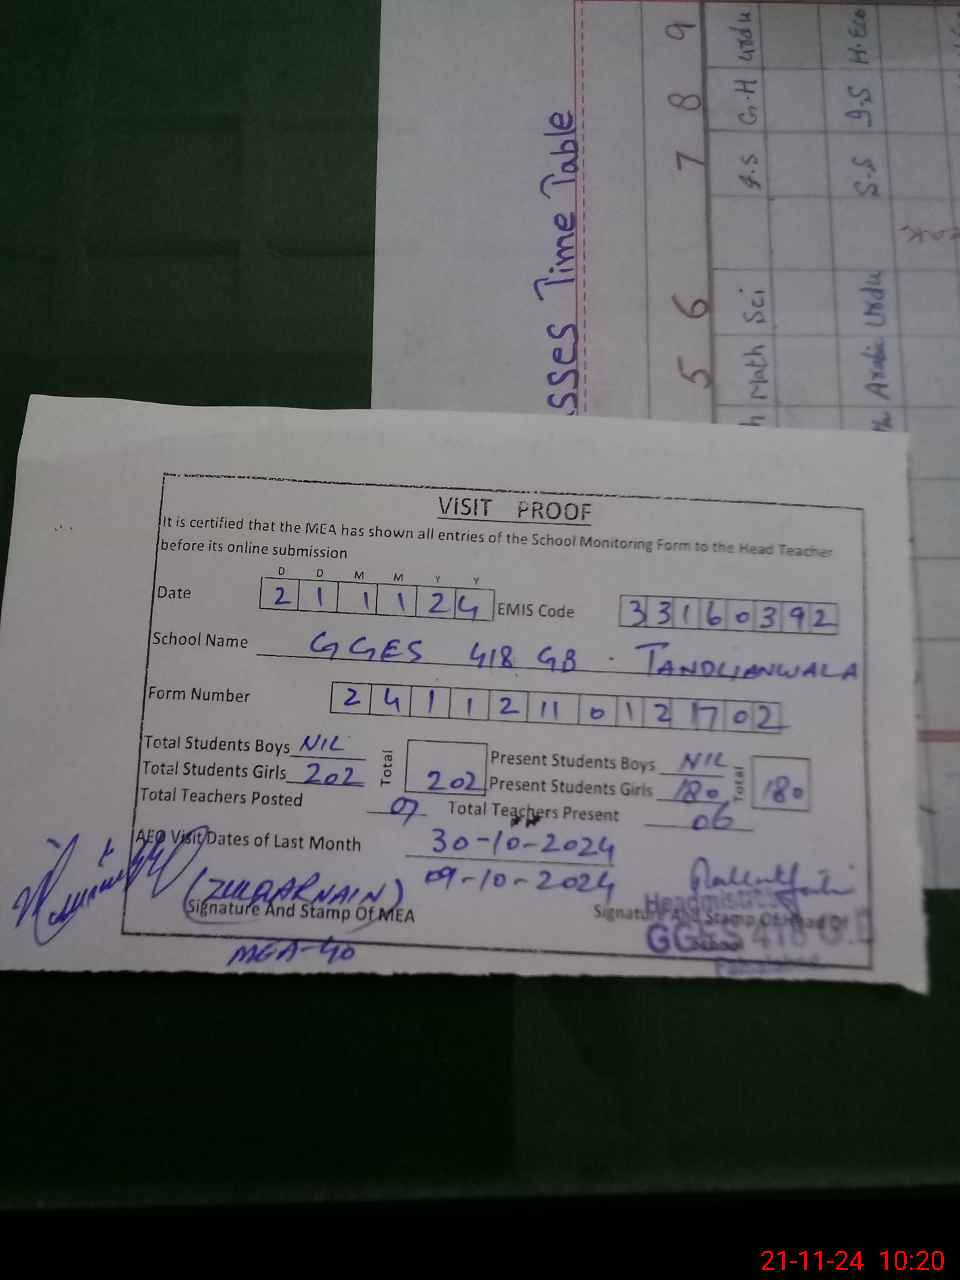 asses Time Table
5 6 7 8 9
h Math Sci I.S G.H Urdu
Arabic Urdu S.S I.S H.Eco
VISIT PROOF
It is certified that the MEA has shown all entries of the School Monitoring Form to the Head Teacher
before its online submission
D D M M Y Y
Date 2 1 1 1 2 4 EMIS Code 3 3 1 6 0 3 9 2
School Name GGES 418 GB . TANDLIANWALA
Form Number 2 4 1 1 2 11 0 1 2 17 0 2
Total Students Boys NIL Total 202 Present Students Boys NIL Total 180
Total Students Girls 202 Present Students Girls 180
Total Teachers Posted 07 Total Teachers Present 06
AEO Visit Dates of Last Month 30-10-2024
09-10-2024
(ZULQARNAIN)
Signature And Stamp Of MEA Signature And Stamp Of Head Of
School
MEA-40
Headmistress
GGES 418 G.B
21-11-24 10:20